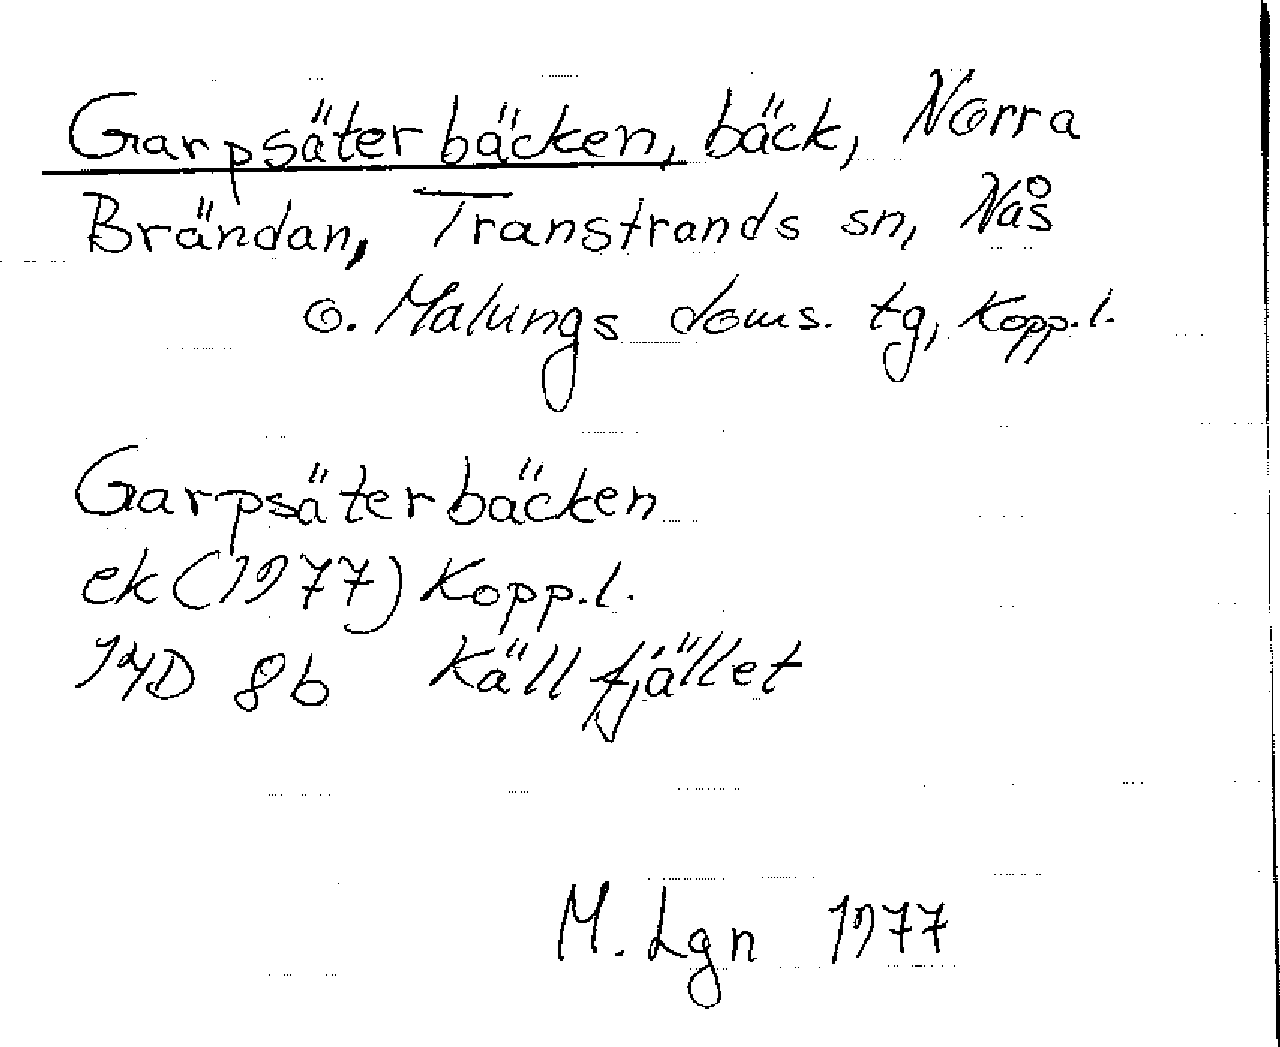 Garpsäterbäcken, bäck, Norra
Brändan, Transtrands sn, Nås
o. Malungs doms. tg, Kopp.l.
Garpsäterbäcken
ek (1977) Kopp.l.
14D 8b Källfjället
M. Lgn 1977